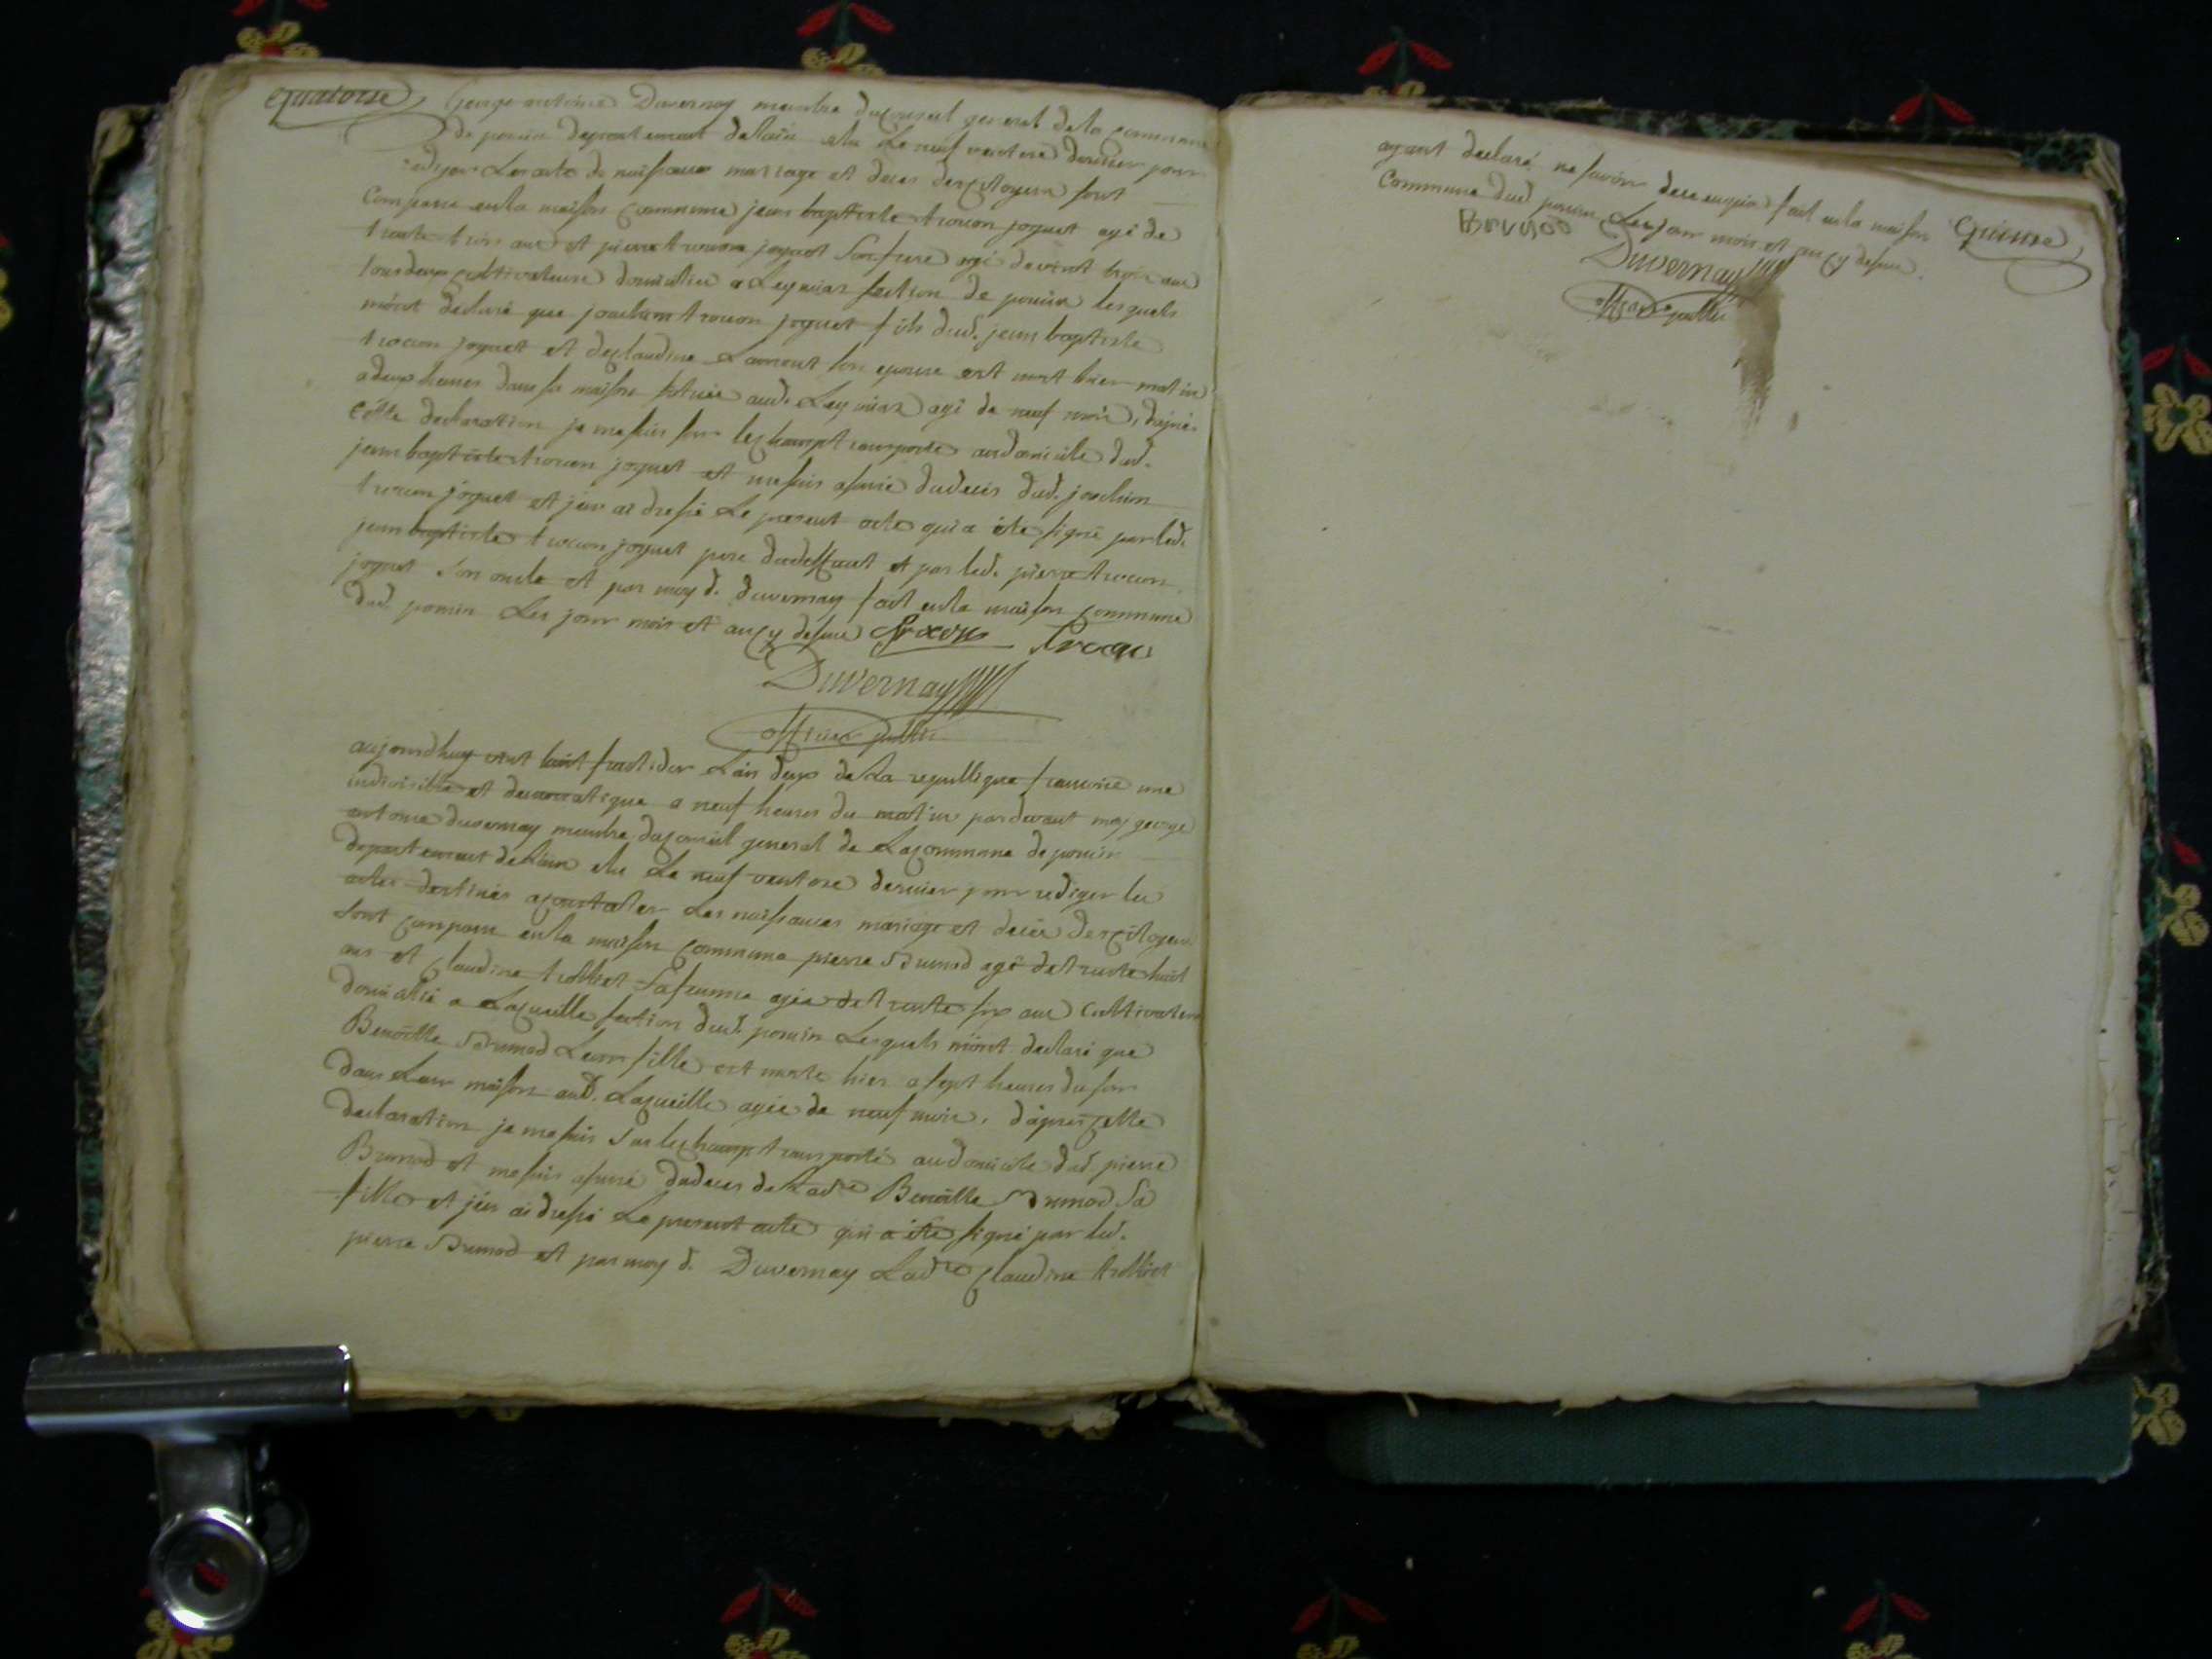 quatorse
George antoine Duvernay membre du conseil general de la commune
de poncin departement de lain elu le neuf ventose dernier pour
rediger les acte de naissance mariage et deces des citoyens sont
comparu en la maison commune jean baptiste trocon joguet agé de
trente trois ans et pierre trocon joguet son frere agé de vint trois ans
tous deux cultivateurs domicilies a Leymiaz section de poncin lesquels
m'ont declaré que joachim trocon joguet fils dud. jean baptiste
trocon joguet et de claudine Lamout son epouse est mort hier matin
a deux heures dans sa maison scituée aud. Leymiaz agé de neuf mois, d'après
cette declaration je me suis sur le champ transporté au domicile dud.
jean baptiste trocon joguet et me suis assuré du deces dud. joachim
trocon joguet et j'en ai dressé le present acte qui a été signé par led.
jean baptiste trocon joguet pere du deffunt et par led. pierre trocon
joguet son oncle et par moy d. duvernay fait en la maison commune
dud. poncin Les jour mois et an cy dessus
Duvernay
officier public
aujourdhuy vint huit fructidor L'an deux de La republique francoise une
indivisible et democratique a neuf heures du matin par devant moy george
antoine duvernay membre du conseil general de La commune de poncin
departement de Lain elu Le neuf ventose dernier pour rediger les
actes destinés a constater Les naissances mariage et deces des citoyens
sont comparu en la maison commune pierre Brunod agé de trente huit
ans et claudine trolliet sa femme agée de trente six ans cultivateurs
domicilié a Lacueille section dud. poncin Lesquels m'ont declaré que
Benoitte Brunod Leur fille est morte hier a sept heures du soir
dans Leur maison aud. Lacueille agée de neuf mois, d'après cette
declaration je me suis sur le champ transporté au domicile dud. pierre
Brunod et me suis assuré du deces de Lad.e Benoitte Brunod sa
fille et j'en ai dressé Le present acte qui a été signé par led.
pierre Brunod et par moy d. Duvernay Lad.te claudine trolliet
quinse
ayant declaré ne savoir de ce enquis fait en la maison
commune dud poncin Les jour mois et an cy dessus.
Brunod
Duvernay
officier public